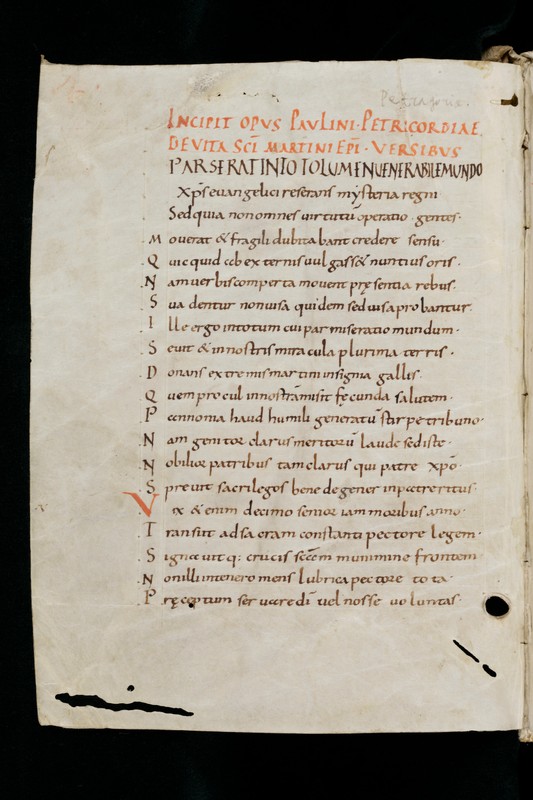 INCIPIT OPUS PAULINI · PETRICORDIAE
DE VITA SCI MARTINI EPI · VERSIBUS
PARSERAT INTOTOLUMEN UENERABILE MUNDO
Xps euangelici reserans mysteria regni
Sed quia non omnes uirtutū operatio gentes·
Mouerat & fragili dubitabant credere sensu·
Quicquid ob externis uulgass& nuntius oris·
Nam uerbis comperta mouent pręsentia rebus·
Sua dentur non uisa quidem sed uisa probantur·
Ille ergo in totum cui par miseratio mundum·
Seuit & in nostris miracula plurima terris·
Donans extremis martini insignia gallis·
Quem procul in nostra misit fęcunda salutem·
Pannonia haud humili generatū stirpe tribuno·
Nam genitor clarus meritorū laude sed iste·
Nobilior patribus tam clarus qui patre xpō·
Spreuit sacrilegos bene degener in patre ritus·
Vix & enim decimo senior iam moribus anno·
Transiit ad sacram constanti pectore legem·
Signauitq: crucis sc̄m munimine frontem·
Non illi in tenero mens lubrica pectore tota·
Pręceptum seruare dī uel nosse uoluntas·